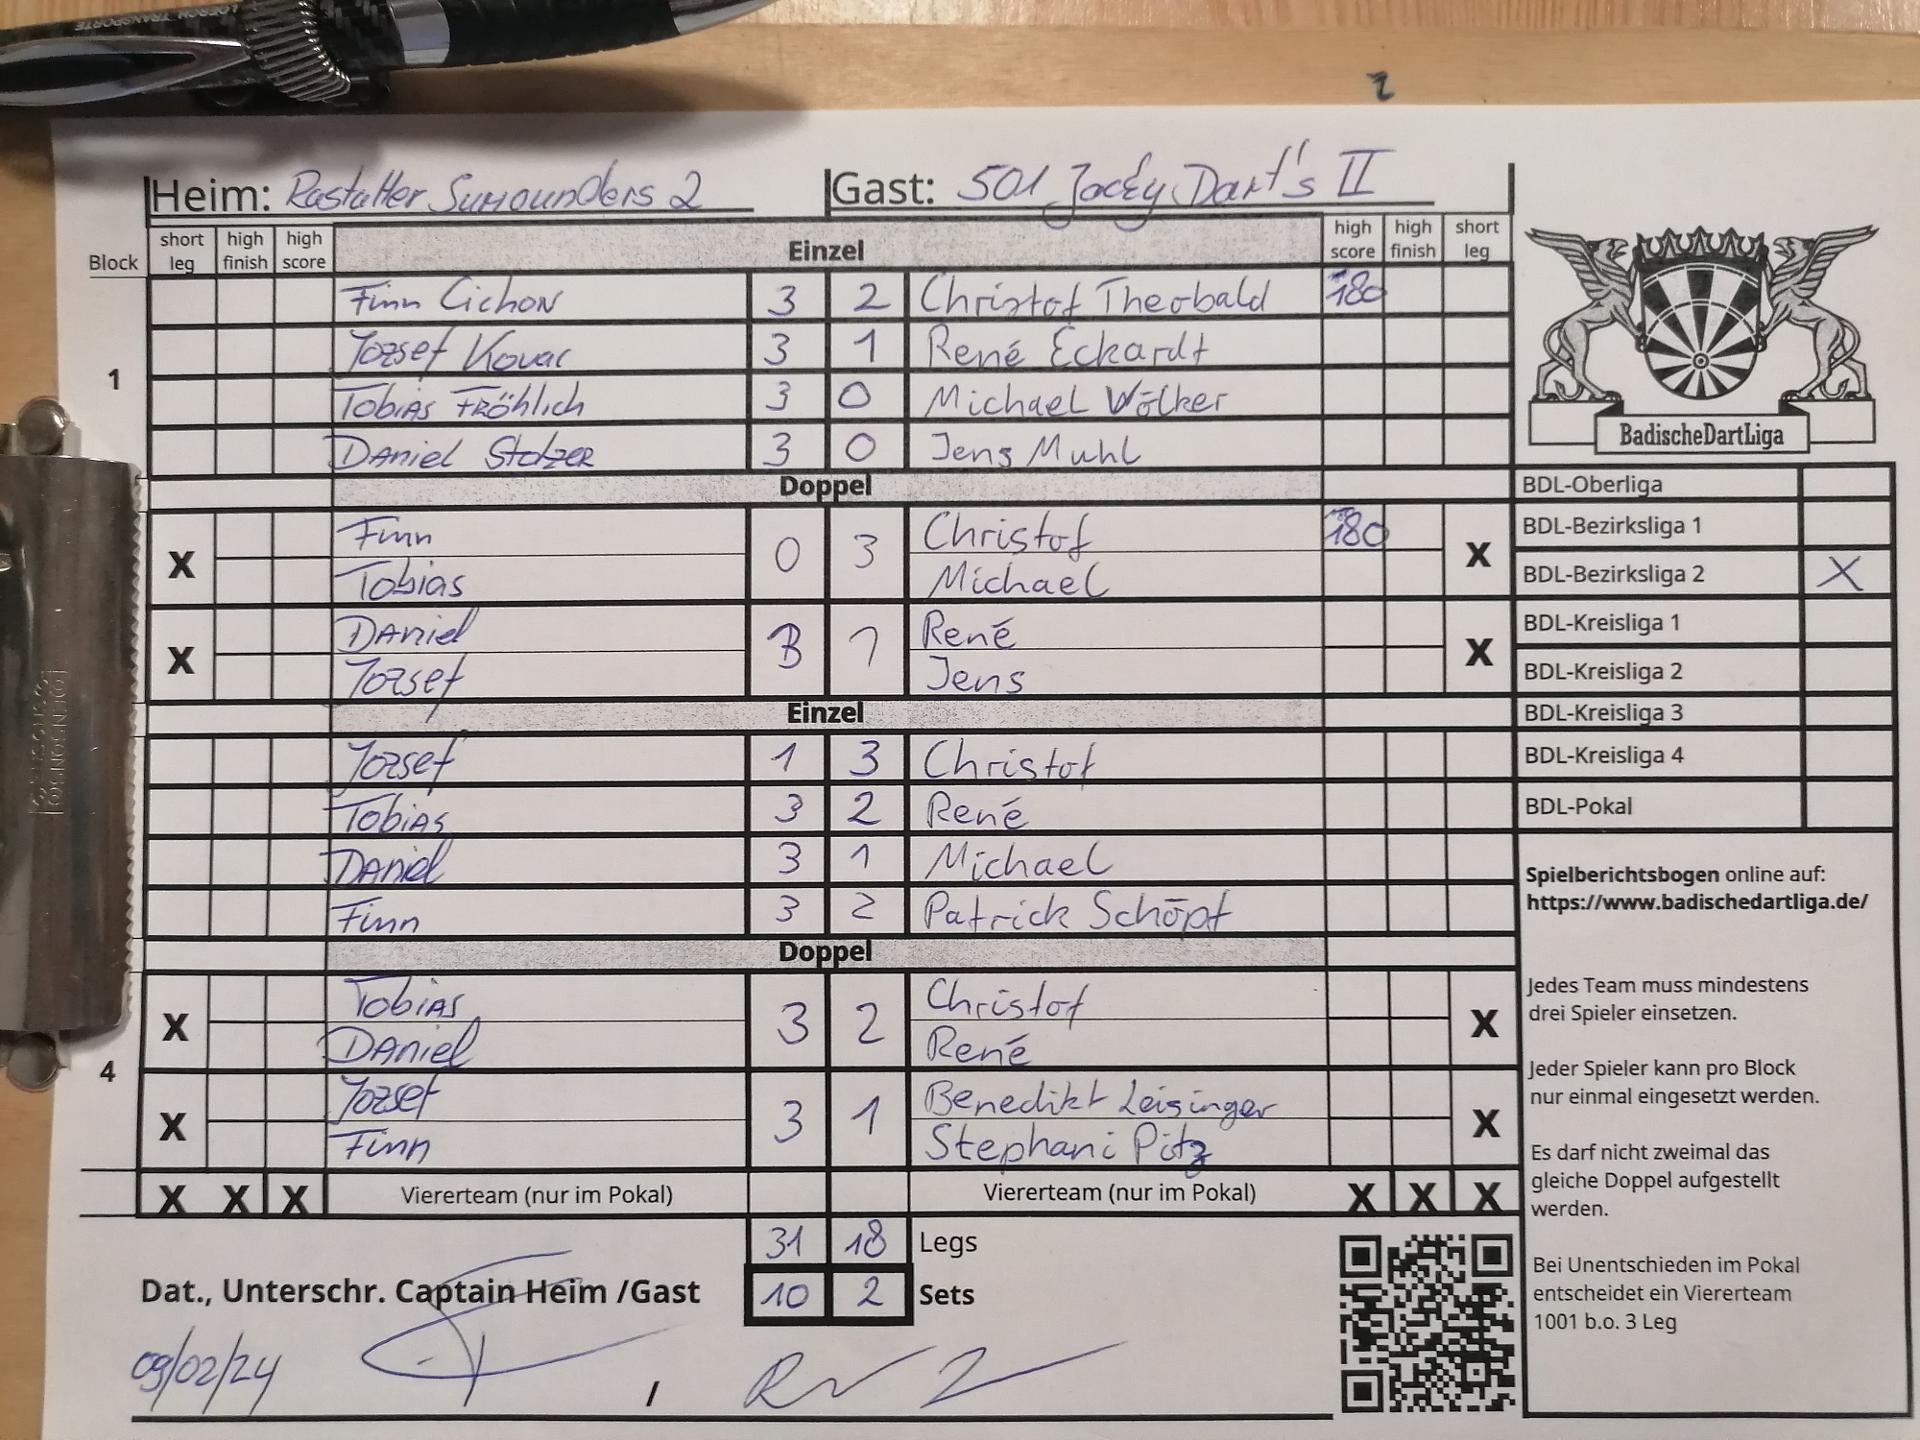 LOESCH TRANSPORTE
Heim: Rastatter Surrounders 2 Gast: 501 Jocky Dart's II
Block short leg high finish high score Einzel high score high finish short leg
Finn Cichon 3 2 Christof Theobald 180
Jozsef Kovac 3 1 René Eckardt
1
Tobias Fröhlich 3 0 Michael Wölker
Daniel Stolzer 3 0 Jens Muhl
BadischeDartLiga
Doppel
X Finn 0 3 Christof 180 X
Tobias Michael
X Daniel 3 1 René X
Jozsef Jens
Einzel
Jozsef 1 3 Christof
Tobias 3 2 René
Daniel 3 1 Michael
Finn 3 2 Patrick Schöpf
Doppel
X Tobias 3 2 Christof X
Daniel René
4
X Jozsef 3 1 Benedikt Leisinger X
Finn Stephani Pitz
X X X Viererteam (nur im Pokal) Viererteam (nur im Pokal) X X X
31 18 Legs
Dat., Unterschr. Captain Heim /Gast 10 2 Sets
09/02/24 /
BDL-Oberliga
BDL-Bezirksliga 1
BDL-Bezirksliga 2 X
BDL-Kreisliga 1
BDL-Kreisliga 2
BDL-Kreisliga 3
BDL-Kreisliga 4
BDL-Pokal
Spielberichtsbogen online auf:
https://www.badischedartliga.de/
Jedes Team muss mindestens
drei Spieler einsetzen.
Jeder Spieler kann pro Block
nur einmal eingesetzt werden.
Es darf nicht zweimal das
gleiche Doppel aufgestellt
werden.
Bei Unentschieden im Pokal
entscheidet ein Viererteam
1001 b.o. 3 Leg